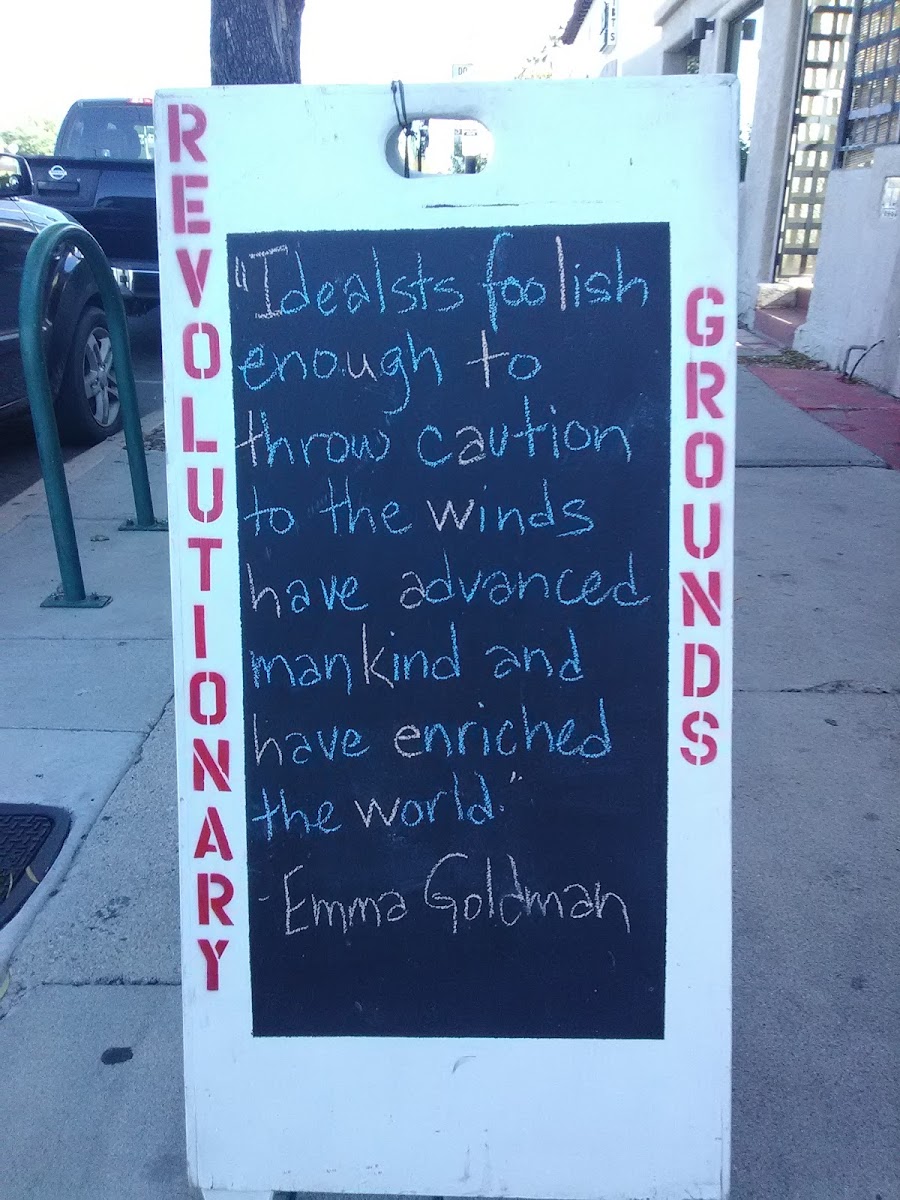 REVOLUTIONARY
GROUNDS
"Idealsts foolish
enough to
throw caution
to the winds
have advanced
mankind and
have enriched
the world."
- Emma Goldman